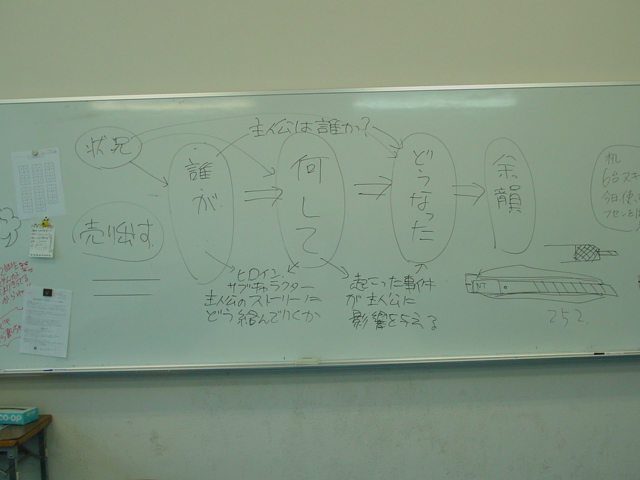 主人公は誰か?
状況
誰が
何して
どうなった
余韻
売り出す
ヒロイン
サブキャラクター
主人公のストーリーに
どう絡んでいくか
起こった事件
が主人公に
影響を与える
机
今日使い
NT
252
CO-OP